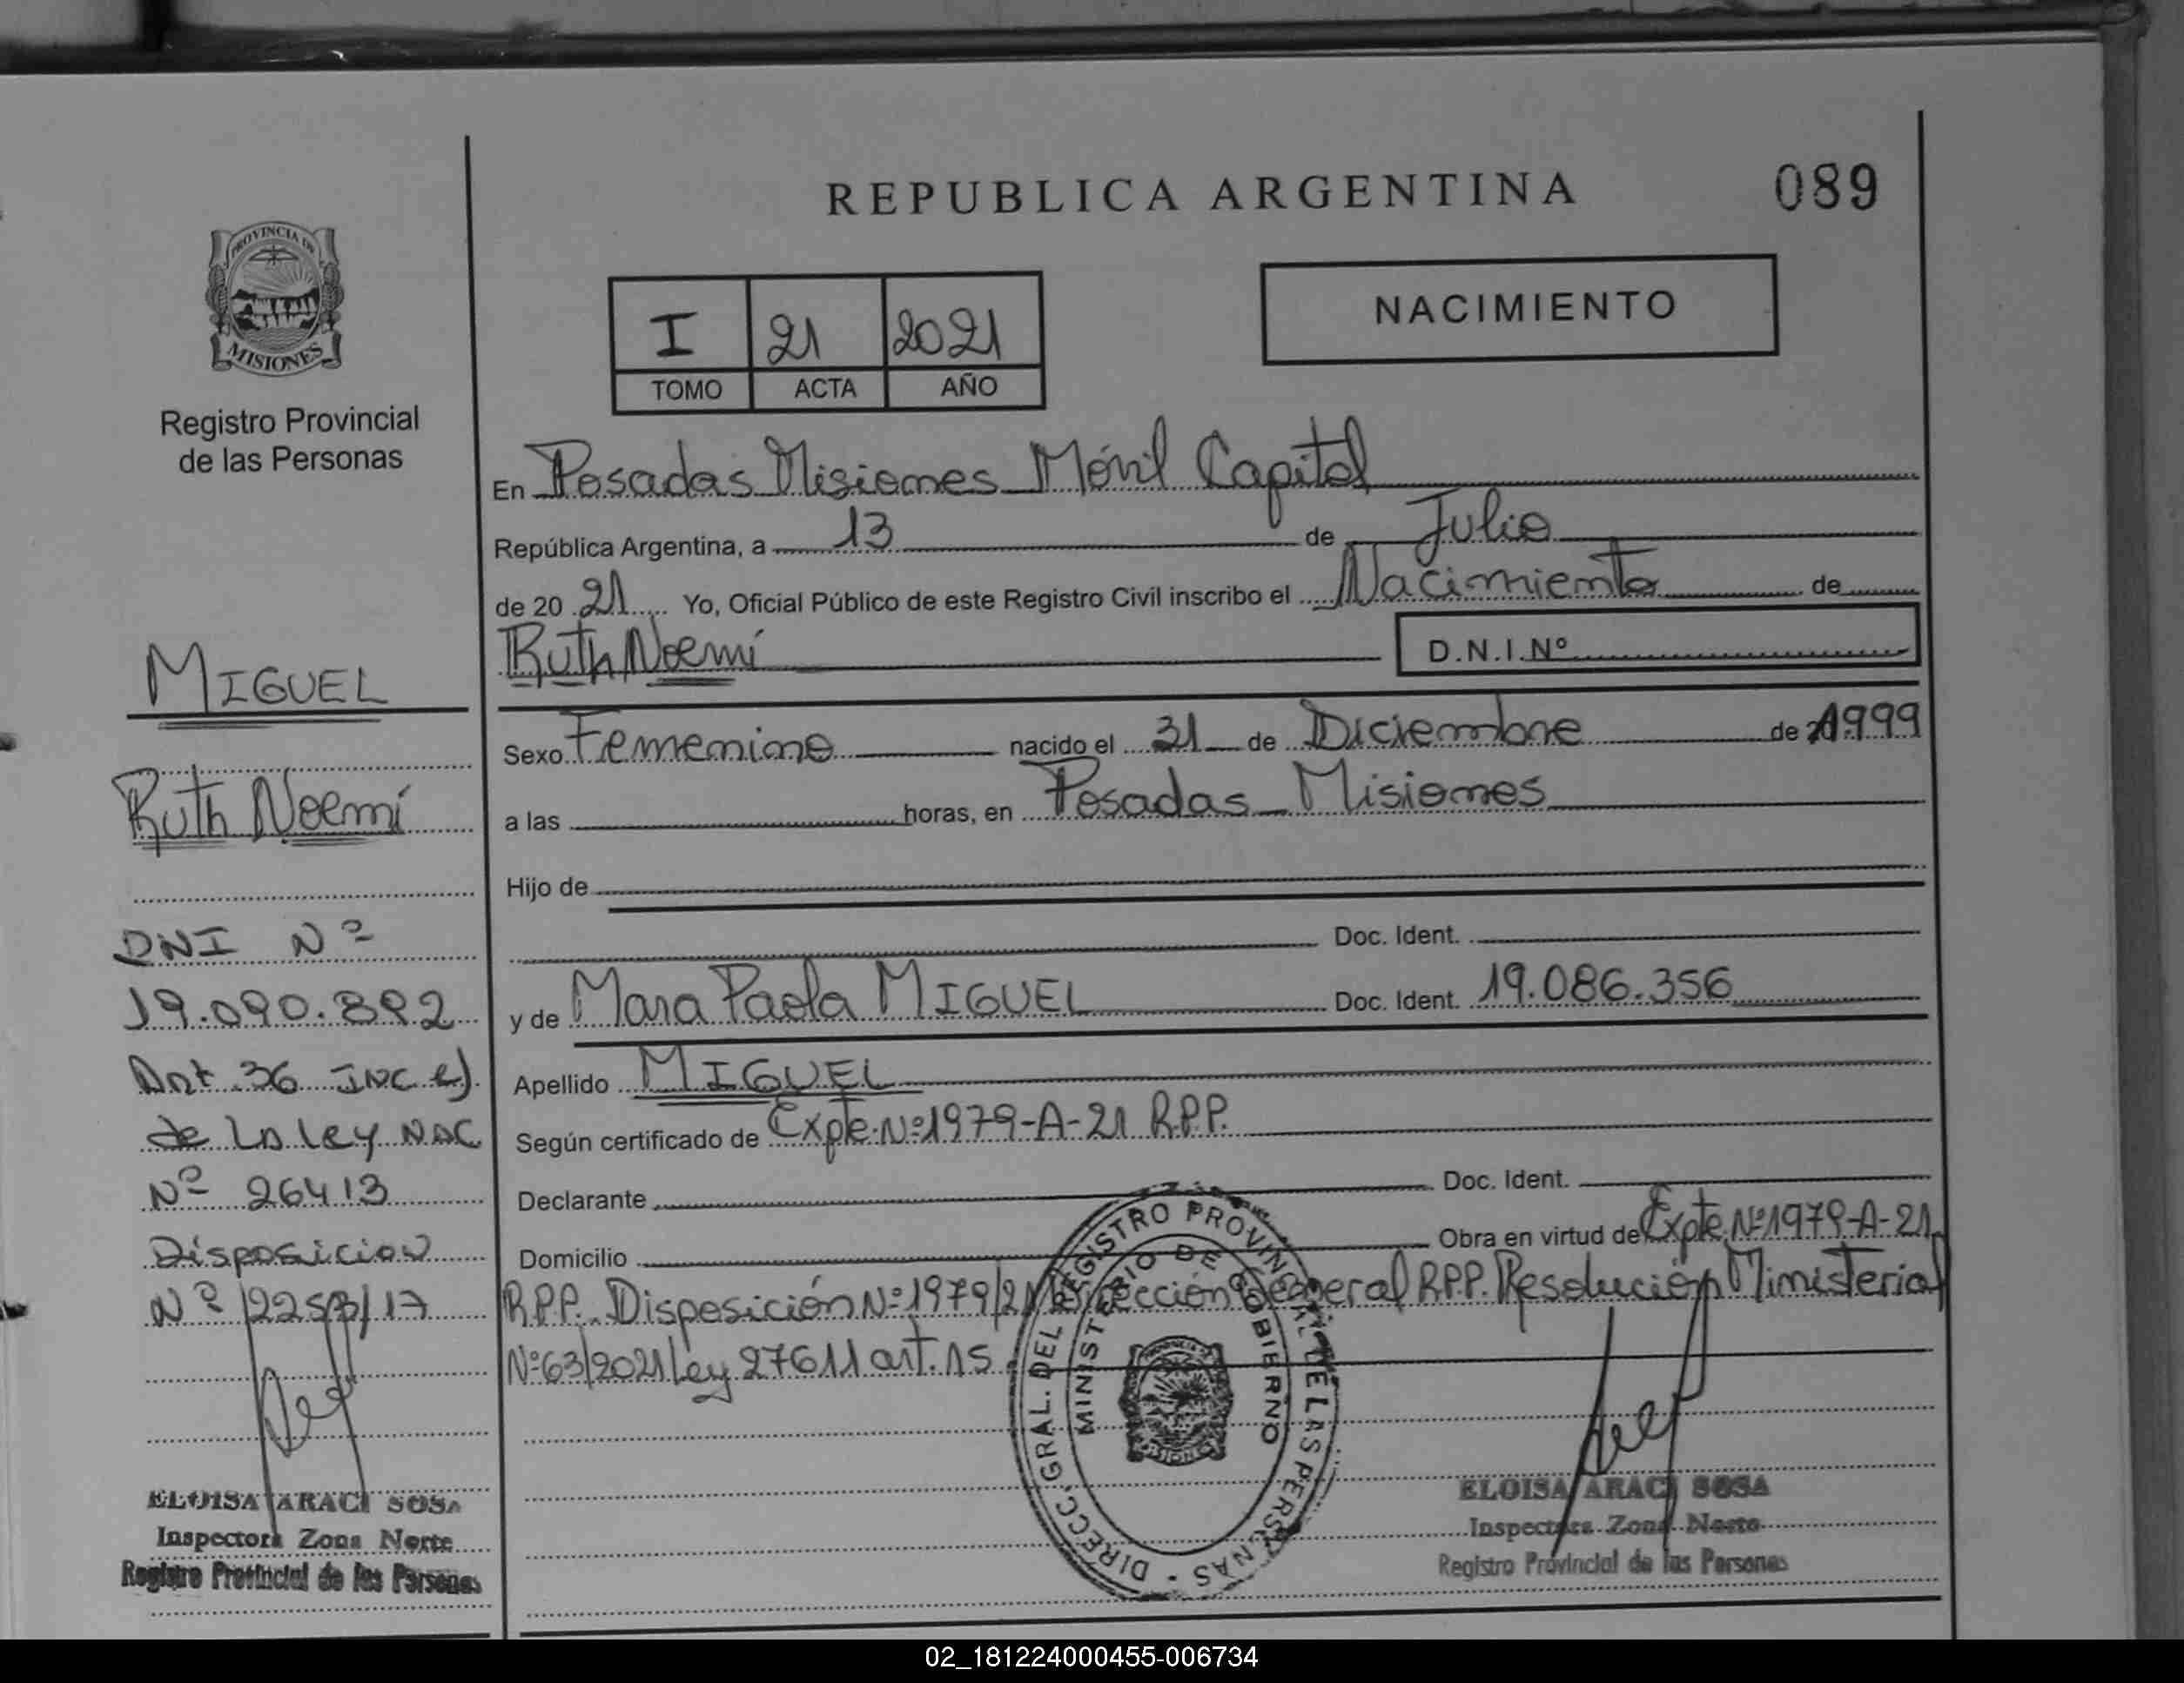 REPUBLICA ARGENTINA
089
PROVINCIA DE
MISIONES
Registro Provincial
de las Personas
I 21 2021
TOMO ACTA AÑO
NACIMIENTO
En Posadas Misiones Móvil Capital
República Argentina, a 13 de Julio
de 20 21 Yo, Oficial Público de este Registro Civil inscribo el Nacimiento de
Ruth Noemí D.N.I.Nº
Sexo Femenino nacido el 31 de Diciembre de 1999
a las horas, en Posadas Misiones
Hijo de
Doc. Ident.
y de Mara Paola MIGUEL Doc. Ident. 19.086.356
Apellido MIGUEL
Según certificado de Expte. Nº 1979-A-21 R.P.P.
Declarante Doc. Ident.
Domicilio Obra en virtud de Expte. Nº 1979-A-21
R.P.P. Disposición Nº 1979/21 Dirección General R.P.P. Resolución Ministerial
Nº 63/2021 Ley 27611 art. 15
DIRECC. GRAL. DEL REGISTRO PROVINCIAL DE LAS PERSONAS
MINISTERIO DE GOBIERNO
ELOISA ARACI SOSA
Inspectora Zona Norte
Registro Provincial de las Personas
MIGUEL
Ruth Noemí
DNI Nº
19.090.892
Art 36 INC e)
de La Ley NAC
Nº 26413
Disposicion
Nº
ELOISA ARACI SOSA
Inspectora Zona Norte
Registro Provincial de las Personas
02_181224000455-006734